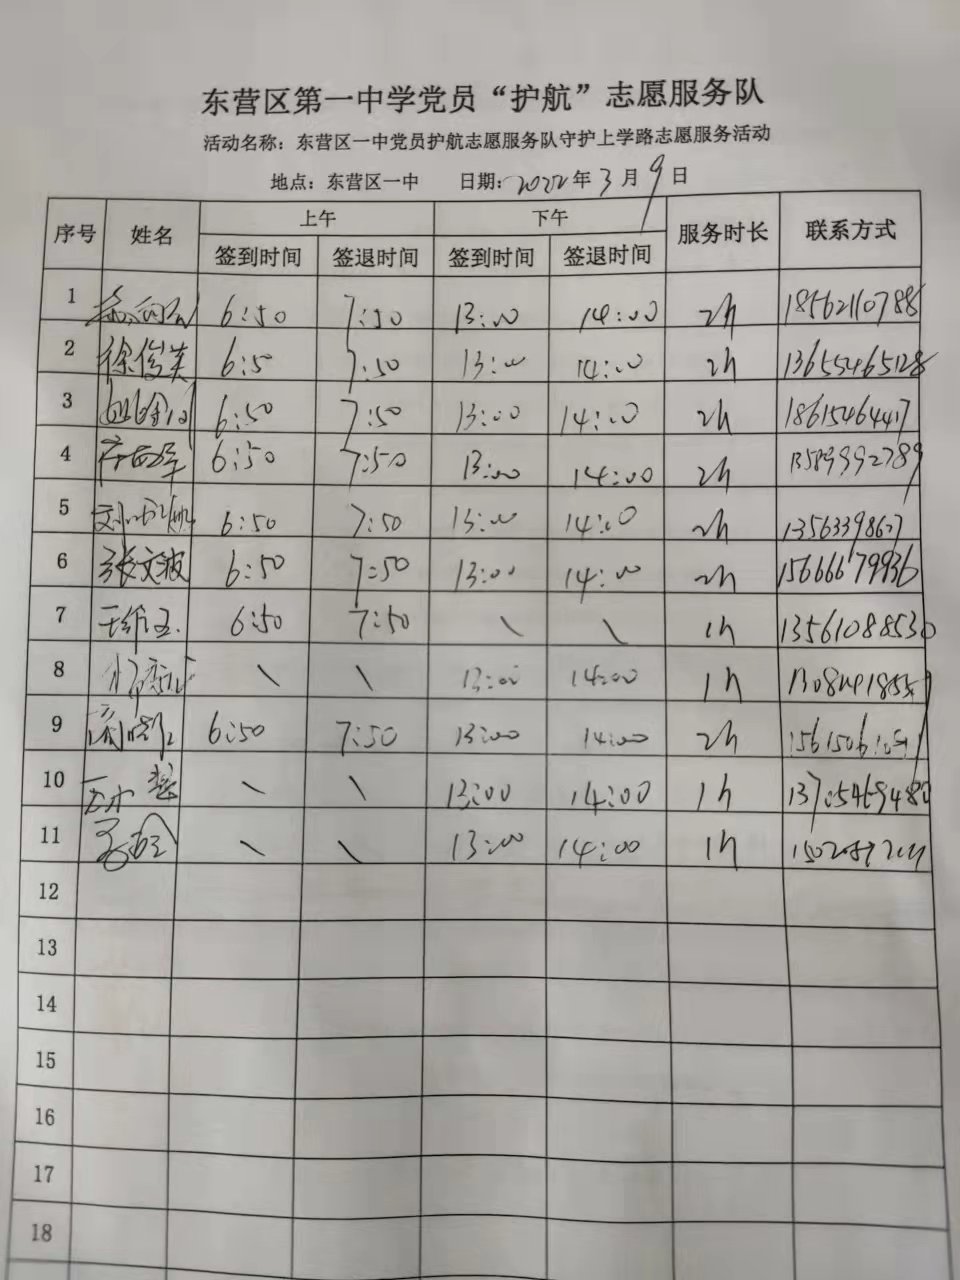 东营区第一中学党员“护航”志愿服务队
活动名称：东营区一中党员护航志愿服务队守护上学路志愿服务活动
地点：东营区一中 日期：2022年3月9日
序号 姓名 上午 下午 服务时长 联系方式
签到时间 签退时间 签到时间 签退时间
1 6:50 7:50 13:00 14:00 2h 18562110788
2 徐俊英 6:50 7:50 13:00 14:00 2h 13655465128
3 6:50 7:50 13:00 14:00 2h
4 6:50 7:50 13:00 14:00 2h 13589992789
5 6:50 7:50 13:00 14:00 2h 13563398627
6 张文波 6:50 7:50 13:00 14:00 2h 15666679936
7 6:50 7:50 \ \ 1h 13561088530
8 \ \ 13:00 14:00 1h
9 6:50 7:50 13:00 14:00 2h
10 \ \ 13:00 14:00 1h 13705469480
11 \ \ 13:00 14:00 1h
12
13
14
15
16
17
18